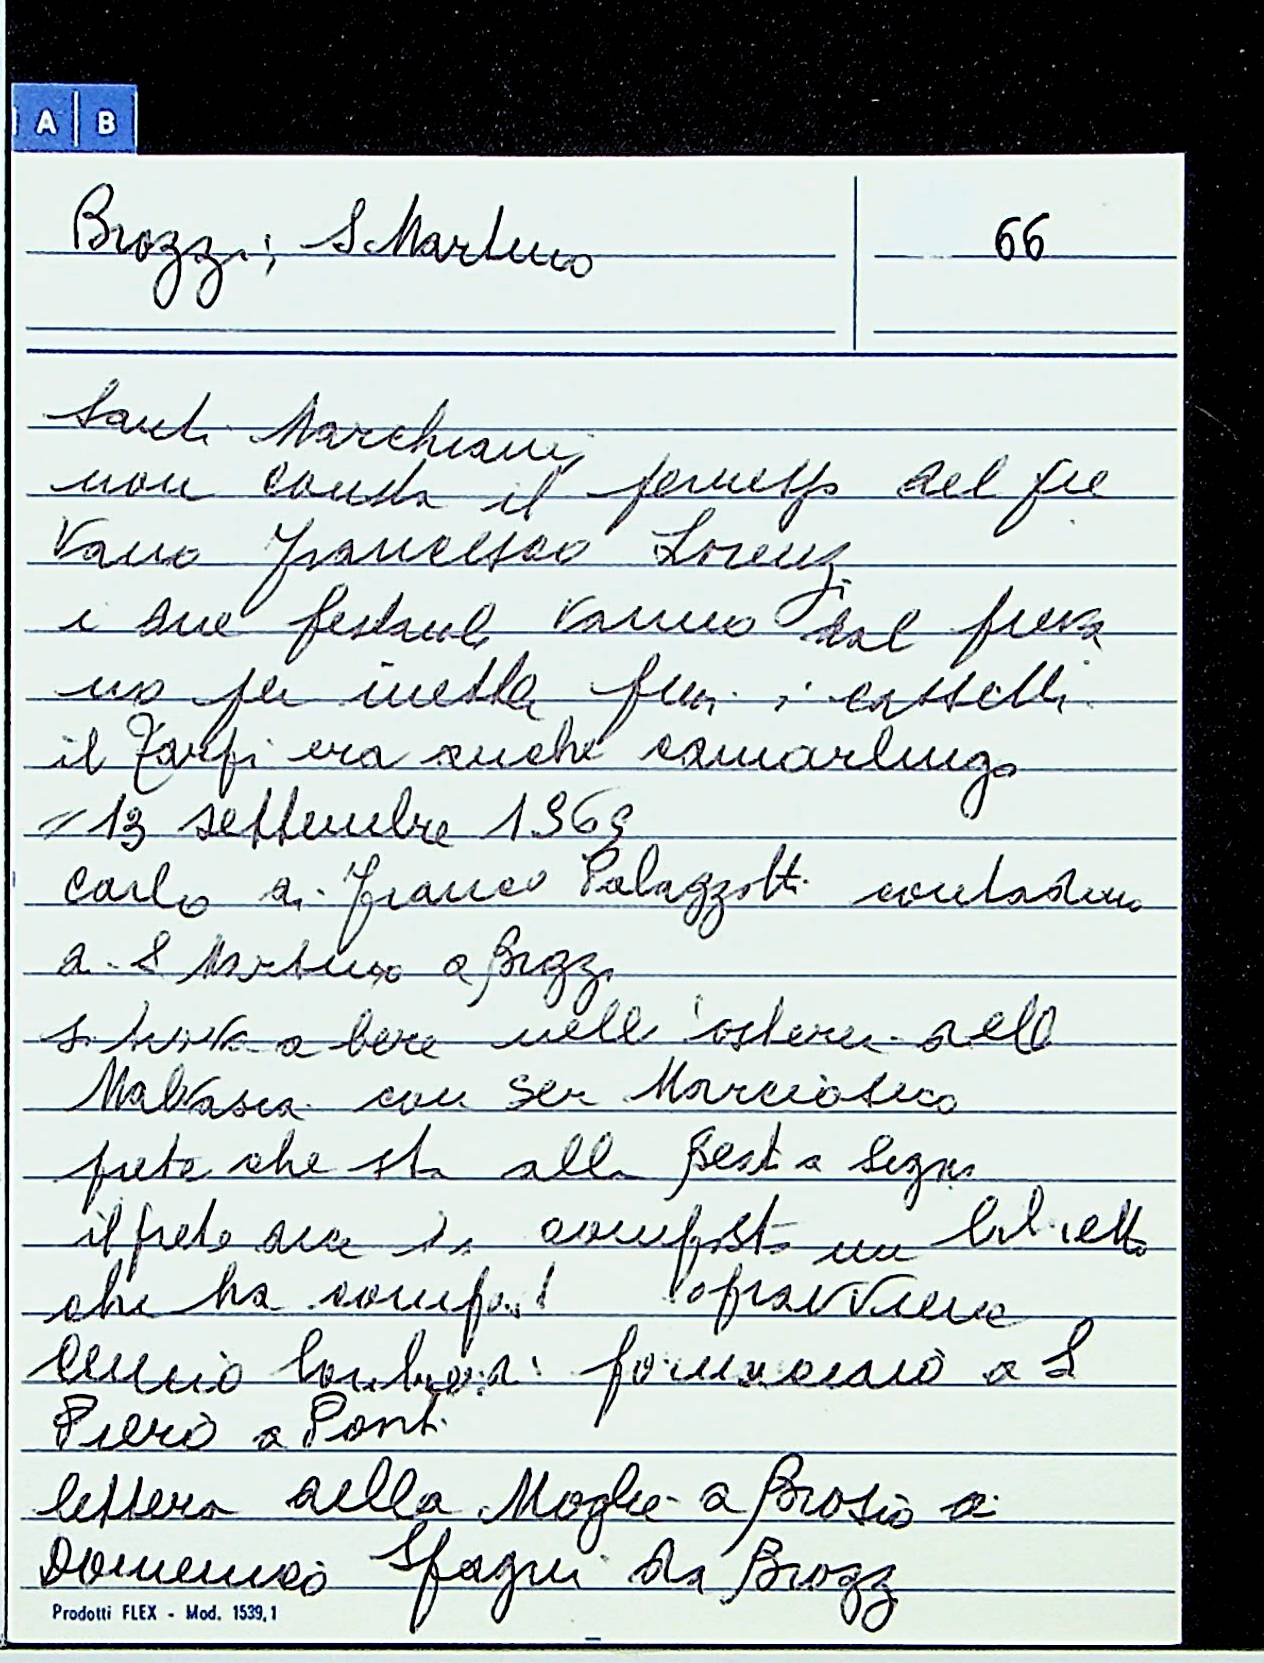 A B
Brozzi; S Martino
66
Santi Marchiani
non consta il permesso del pie
vano Francesco Lorenzi
i due festaioli vanno dal pieva
no per
il era anche camarlingo
13 settembre 1969
Carlo di Franco Palazzotti contadino
a S Martino a Brozzi
si trova a bere nell'osteria della
Malvasia con ser
prete che sta alla a Segna
il prete dice composto un libretto
che ha sopravviene
Cencio fornaciaio a S
Piero a Ponti
lettera della Moglie a di
Domenico Spagni da Brozzi
Prodotti FLEX - Mod. 1539,1